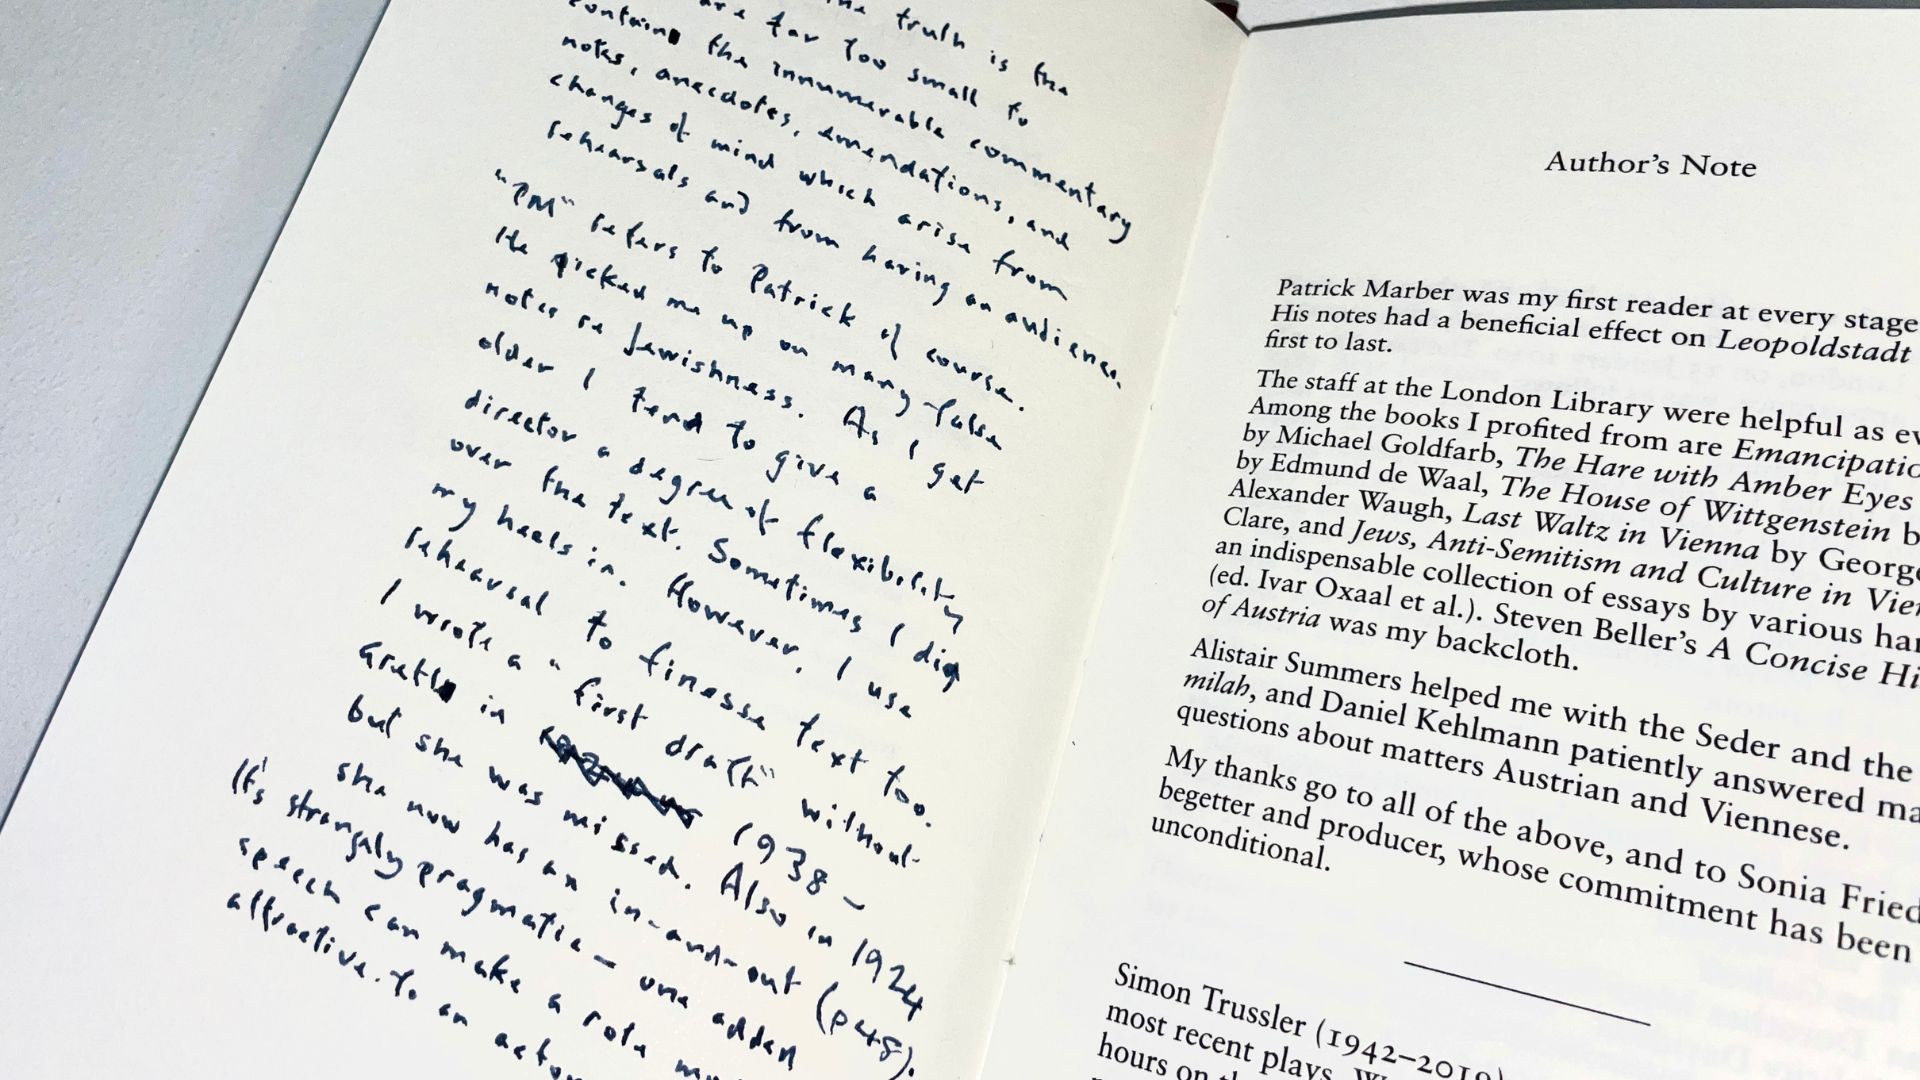 the truth is the
are far too small to
contain the innumerable commentary
notes, anecdotes, emendations, and
changes of mind which arise from
rehearsals and from having an audience.
"PM" refers to Patrick of course.
He picked me up on many false
notes re Jewishness. As I get
older I tend to give a
director a degree of flexibility
over the text. Sometimes I dig
my heels in. However, I use
rehearsal to finesse text too.
I wrote a "first draft" without
Gretl in 1938 –
but she was missed. Also in 1924
she now has an in-and-out (p48).
It's strangely pragmatic – one added
speech can make a role more
attractive. To an actor
Author's Note
Patrick Marber was my first reader at every stage
His notes had a beneficial effect on Leopoldstadt
first to last.
The staff at the London Library were helpful as
Among the books I profited from are
by Michael Goldfarb, The Hare with Amber Eyes
by Edmund de Waal, The House of Wittgenstein
Alexander Waugh, Last Waltz in Vienna by
Clare, and Jews, Anti-Semitism and Culture in
an indispensable collection of essays by various
(ed. Ivar Oxaal et al.). Steven Beller's A Concise
of Austria was my backcloth.
Alistair Summers helped me with the Seder and the
milah, and Daniel Kehlmann patiently answered
questions about matters Austrian and Viennese.
My thanks go to all of the above, and to Sonia
begetter and producer, whose commitment has been
unconditional.
Simon Trussler (1942–2019)
most recent plays.
hours on